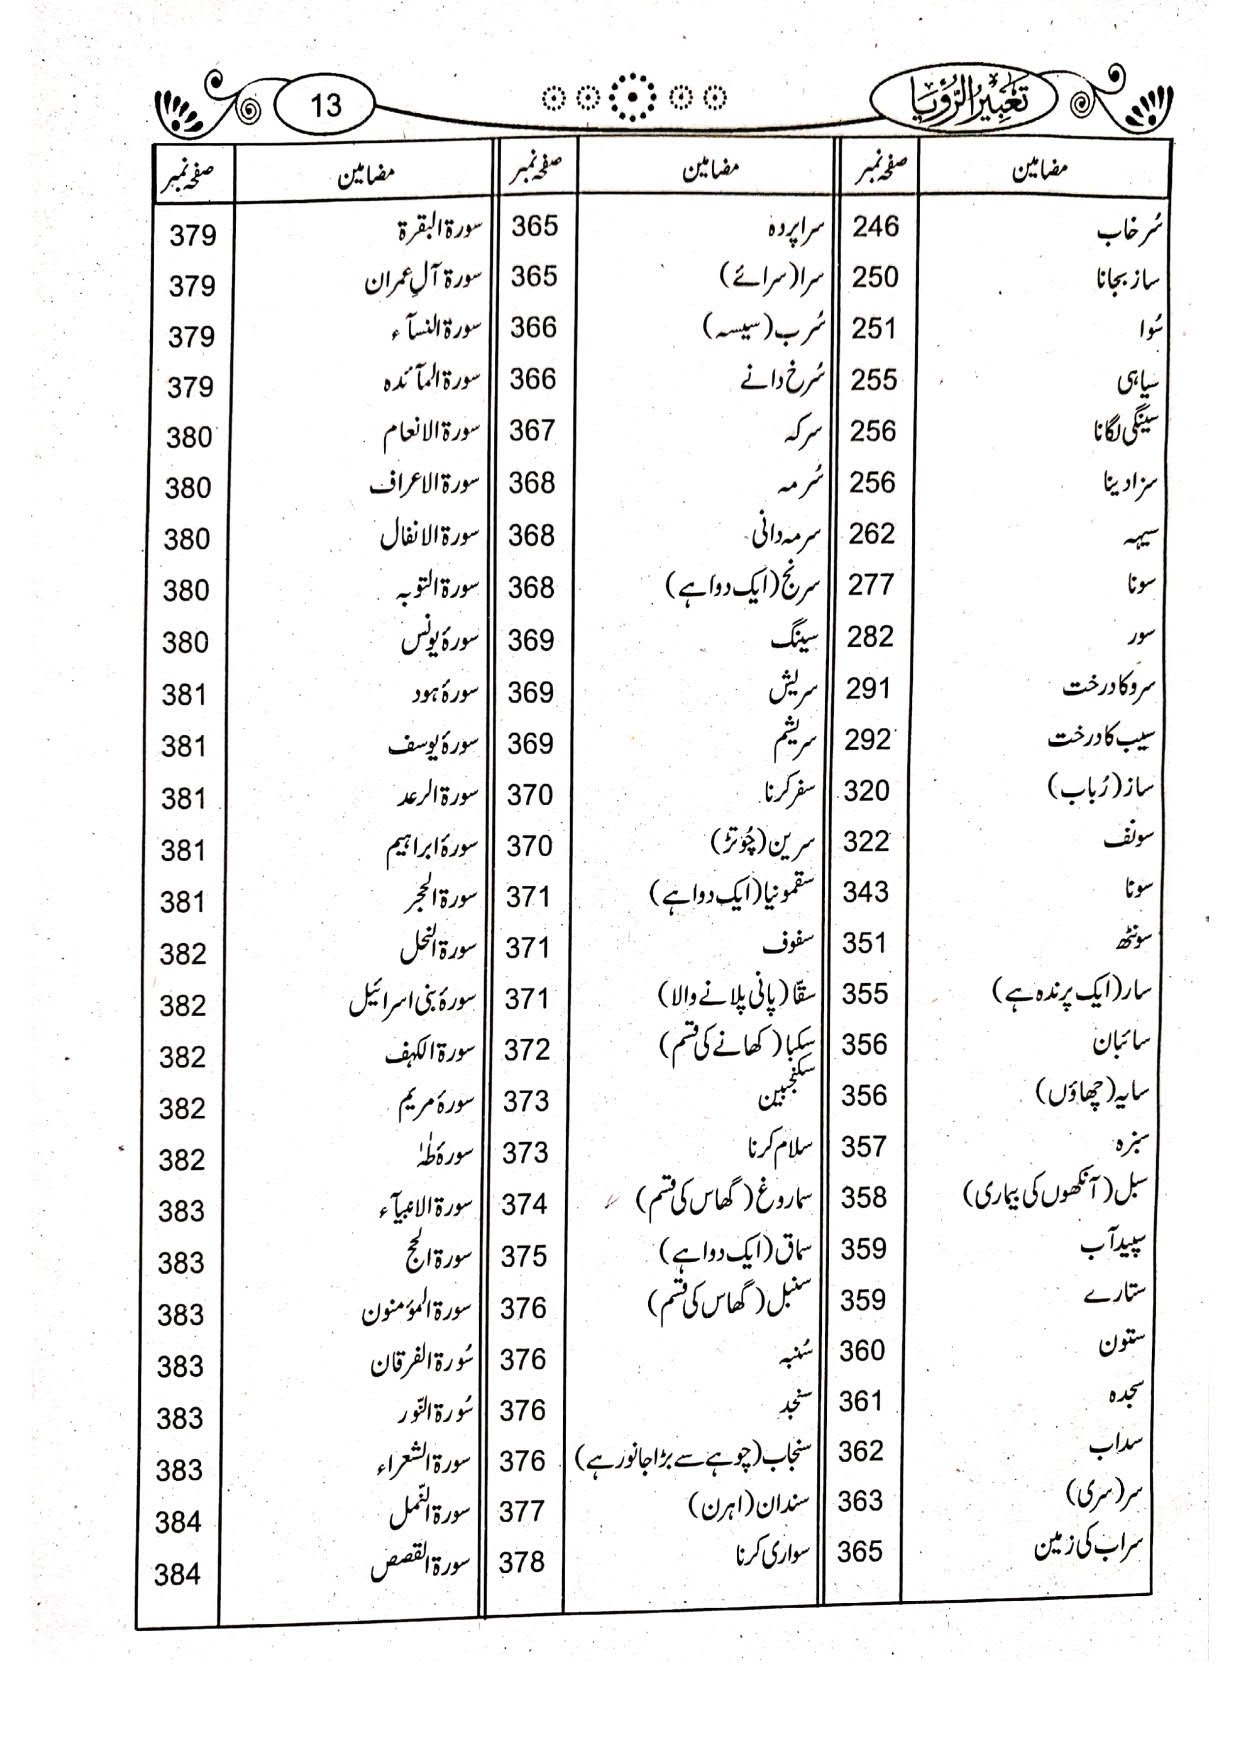 تعبیر الرؤیا
13
مضامین صفحہ نمبر مضامین صفحہ نمبر مضامین صفحہ نمبر
سُرخاب 246 سراپردہ 365 سورۃ البقرۃ 379
ساز بجانا 250 سرا (سرائے) 365 سورۃ آلِ عمران 379
سُوا 251 سُرب (سیسہ) 366 سورۃ النسآء 379
سیاہی 255 سُرخ دانے 366 سورۃ المآئدہ 379
سینگی لگانا 256 سرکہ 367 سورۃ الانعام 380
سزا دینا 256 سُرمہ 368 سورۃ الاعراف 380
سیہہ 262 سرمہ دانی 368 سورۃ الانفال 380
سونا 277 سرنج (ایک دوا ہے) 368 سورۃ التوبہ 380
سور 282 سینگ 369 سورۂ یونس 380
سرو کا درخت 291 سریش 369 سورۂ ہود 381
سیب کا درخت 292 سریشم 369 سورۂ یوسف 381
ساز (رُباب) 320 سفر کرنا 370 سورۃ الرعد 381
سونف 322 سرین (چُوتڑ) 370 سورۂ ابراہیم 381
سونا 343 سقمونیا (ایک دوا ہے) 371 سورۃ الحجر 381
سونٹھ 351 سفوف 371 سورۃ النحل 382
سار (ایک پرندہ ہے) 355 سقّا (پانی پلانے والا) 371 سورۂ بنی اسرائیل 382
سائبان 356 سکبا (کھانے کی قسم) 372 سورۃ الکہف 382
سایہ (چھاؤں) 356 سکنجبین 373 سورۂ مریم 382
سبزہ 357 سلام کرنا 373 سورۂ طٰہٰ 382
سبل (آنکھوں کی بیماری) 358 سماروغ (گھاس کی قسم) 374 سورۃ الانبیآء 383
سپیدآب 359 سماق (ایک دوا ہے) 375 سورۃ الحج 383
ستارے 359 سنبل (گھاس کی قسم) 376 سورۃ المؤمنون 383
ستون 360 سُنبہ 376 سُورۃ الفرقان 383
سجدہ 361 سنجد 376 سُورۃ النّور 383
سداب 362 سنجاب (چوہے سے بڑا جانور ہے) 376 سورۃ الشعراء 383
سر (سری) 363 سندان (اہرن) 377 سورۃ النّمل 384
سراب کی زمین 365 سواری کرنا 378 سورۃ القصص 384